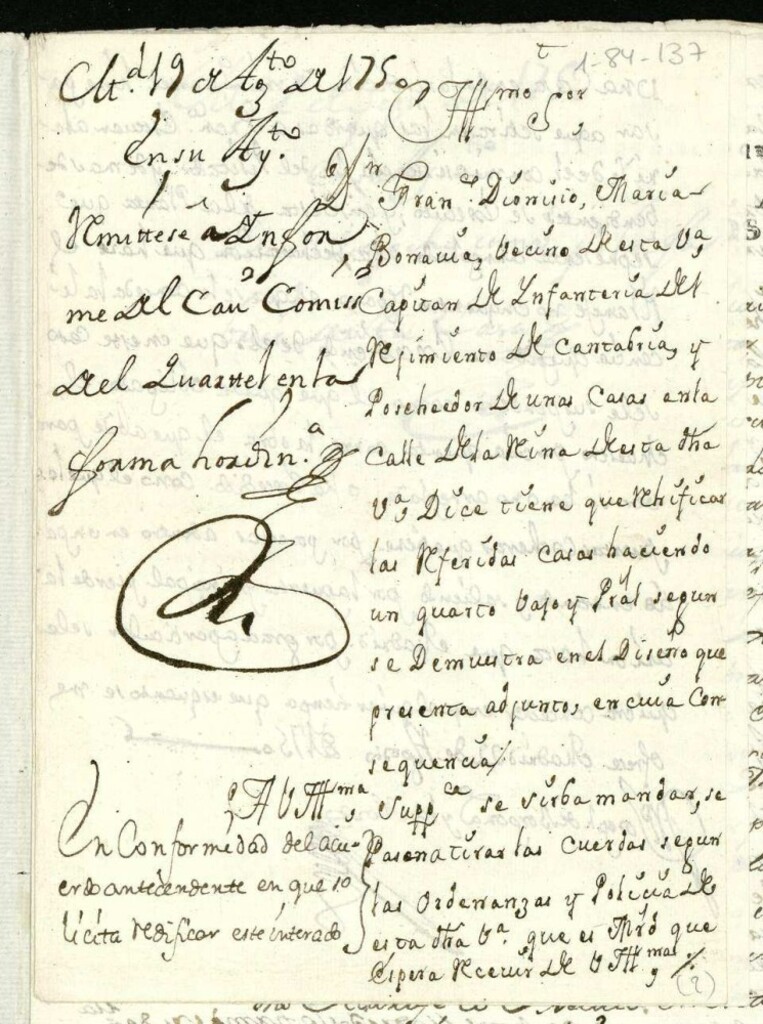 1-84-137
Md. 19 de Agto de 1750
En su Ayto.
Remittese a Informe
me del Cavo Comiss
del Quartel en la
forma hordin.a
Yllmo Sor
Franco Dionisio, Maria
Bonavia, Vecino de esta Va
Capitan de Ynfanteria del
Rejimiento de Cantabria, y
Poseheedor de unas Casas en la
Calle de la Reina de esta dha
Va Dice tiene que Rehificar
las Referidas Casas haciendo
un quarto bajo y Pral segun
se Demuestra en el Diseño que
presenta adjunto, en cuia Con-
sequencia
A V Yllma Suppca se sirba mandar, se
Pasen a tirar las Cuerdas segun
las Ordenanzas y Policia de
esta dha Va. que es Mrd que
Espera Recevir de V Yllma
En Conformidad del acu-
erdo antecendente en que so
licita redificar este interado
(2)